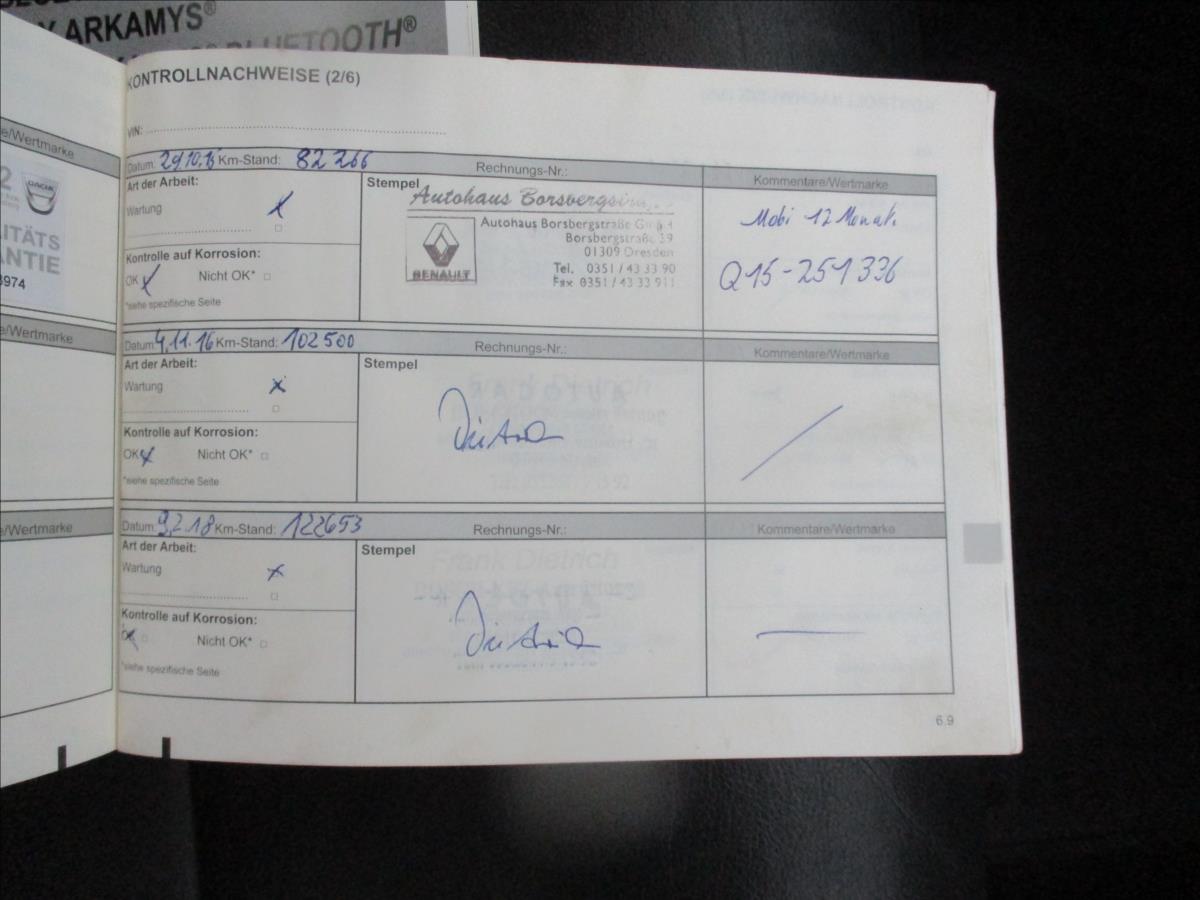 ARKAMYS®
BLUETOOTH®
e/Wertmarke
2
DACIA
LITÄTS
ANTIE
3974
e/Wertmarke
e/Wertmarke
KONTROLLNACHWEISE (2/6)
VIN:
Datum: 29.10.15 Km-Stand: 82 266 Rechnungs-Nr.: Kommentare/Wertmarke
Art der Arbeit:
Wartung X
Kontrolle auf Korrosion:
OK X Nicht OK*
*siehe spezifische Seite
Stempel
Autohaus
Autohaus Borsbergstraße
Borsbergstraße 39
01309 Dresden
Tel. 0351 / 43 33 90
Fax 0351 / 43 33 911
RENAULT
Mobi 12 Monat.
Q15-251336
Datum: 4.11.16 Km-Stand: 102500 Rechnungs-Nr.: Kommentare/Wertmarke
Art der Arbeit:
Wartung X
Kontrolle auf Korrosion:
OK X Nicht OK*
*siehe spezifische Seite
Stempel
Datum: 9.2.18 Km-Stand: 122653 Rechnungs-Nr.: Kommentare/Wertmarke
Art der Arbeit:
Wartung X
Kontrolle auf Korrosion:
OK X Nicht OK*
*siehe spezifische Seite
Stempel
Frank Dietrich
6.9